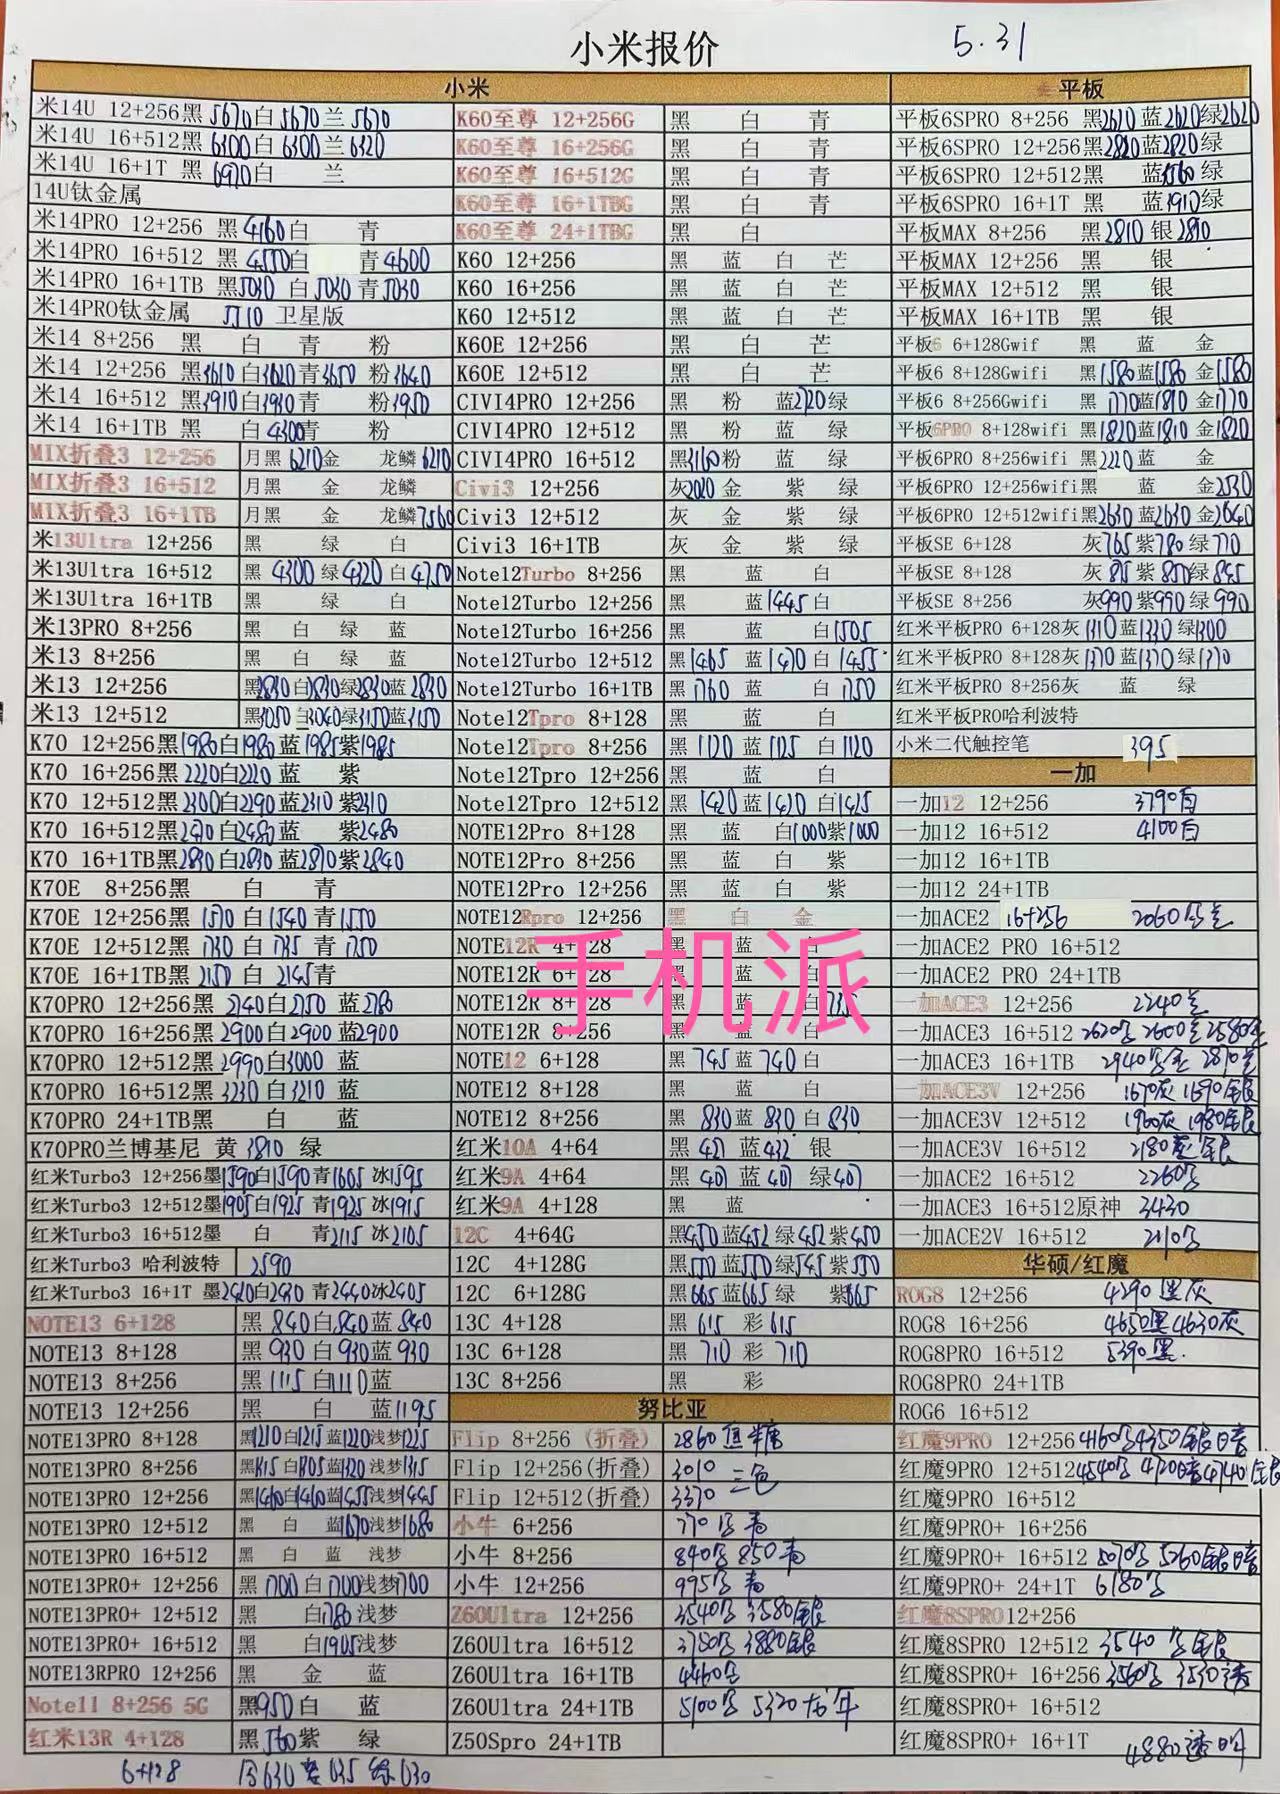 小米报价 5.31
小米
米14U 12+256黑5670白5670兰5670
米14U 16+512黑6300白6300兰6320
米14U 16+1T 黑6970白 兰
14U钛金属
米14PRO 12+256 黑4160白 青
米14PRO 16+512 黑4550白 青4600
米14PRO 16+1TB 黑5030 白5030青5030
米14PRO钛金属 5510 卫星版
米14 8+256 黑 白 青 粉
米14 12+256 黑3610白3620青3650 粉3640
米14 16+512 黑3910白3930青 粉3950
米14 16+1TB 黑 白4300青 粉
MIX折叠3 12+256 月黑6210金 龙鳞6210
MIX折叠3 16+512 月黑 金 龙鳞
MIX折叠3 16+1TB 月黑 金 龙鳞7560
米13Ultra 12+256 黑 绿 白
米13Ultra 16+512 黑 4300绿4320白4750
米13Ultra 16+1TB 黑 绿 白
米13PRO 8+256 黑 白 绿 蓝
米13 8+256 黑 白 绿 蓝
米13 12+256 黑2830白2830绿2830蓝2830
米13 12+512 黑3050白3040绿3150蓝3150
K70 12+256黑1980白1980蓝1985紫1985
K70 16+256黑2220白2220 蓝 紫
K70 12+512黑2300白2290蓝2310紫2310
K70 16+512黑2470白2480蓝 紫2480
K70 16+1TB黑2830白2830蓝2870紫2840
K70E 8+256黑 白 青
K70E 12+256黑 1570白1540青1550
K70E 12+512黑 1730白1735青1750
K70E 16+1TB黑 2150 白 2145青
K70PRO 12+256黑 2740白2750 蓝2780
K70PRO 16+256黑2900白2900蓝2900
K70PRO 12+512黑2990白3000 蓝
K70PRO 16+512黑3230白3210 蓝
K70PRO 24+1TB黑 白 蓝
K70PRO兰博基尼 黄 3810 绿
红米Turbo3 12+256墨1590白1590青1665冰1595
红米Turbo3 12+512墨1905白1925青1925冰1915
红米Turbo3 16+512墨 白 青2115冰2105
红米Turbo3 哈利波特 2590
红米Turbo3 16+1T 墨2420白2430青2440冰2405
NOTE13 6+128 黑 840白840蓝840
NOTE13 8+128 黑 930白930蓝930
NOTE13 8+256 黑1115白1110蓝
NOTE13 12+256 黑 白 蓝1195
NOTE13PRO 8+128 黑1210白1215蓝1220浅梦1225
NOTE13PRO 8+256 黑1315白1305蓝1320浅梦1315
NOTE13PRO 12+256 黑1460白1460蓝1455浅梦1445
NOTE13PRO 12+512 黑 白 蓝1670浅梦1680
NOTE13PRO 16+512 黑 白 蓝 浅梦
NOTE13PRO+ 12+256 黑1700白1700浅梦1700
NOTE13PRO+ 12+512 黑 白1780浅梦
NOTE13PRO+ 16+512 黑 白1905浅梦
NOTE13RPRO 12+256 黑 金 蓝
Note11 8+256 5G 黑950白 蓝
红米13R 4+128 黑560紫 绿
6+128
K60至尊 12+256G 黑 白 青
K60至尊 16+256G 黑 白 青
K60至尊 16+512G 黑 白 青
K60至尊 16+1TBG 黑 白 青
K60至尊 24+1TBG 黑 白
K60 12+256 黑 蓝 白 芒
K60 16+256 黑 蓝 白 芒
K60 12+512 黑 蓝 白 芒
K60E 12+256 黑 白 芒
K60E 12+512 黑 白 芒
CIVI4PRO 12+256 黑 粉 蓝2720绿
CIVI4PRO 12+512 黑 粉 蓝 绿
CIVI4PRO 16+512 黑3160粉 蓝 绿
Civi3 12+256 灰2020金 紫 绿
Civi3 12+512 灰 金 紫 绿
Civi3 16+1TB 灰 金 紫 绿
Note12Turbo 8+256 黑 蓝 白
Note12Turbo 12+256 黑 蓝1445白
Note12Turbo 16+256 黑 蓝 白1505
Note12Turbo 12+512 黑1465蓝1470白1455
Note12Turbo 16+1TB 黑1760蓝 白1750
Note12Tpro 8+128 黑 蓝 白
Note12Tpro 8+256 黑 1120蓝1125 白1120
Note12Tpro 12+256 黑 蓝 白
Note12Tpro 12+512 黑 1420蓝1420白1425
NOTE12Pro 8+128 黑 蓝 白1000紫1000
NOTE12Pro 8+256 黑 蓝 白 紫
NOTE12Pro 12+256 黑 蓝 白 紫
NOTE12Rpro 12+256 黑 白 金
NOTE12R 4+128 黑 蓝 白
NOTE12R 6+128 黑 蓝 白
NOTE12R 8+128 黑 蓝 白735
NOTE12R 8+256 黑 蓝 白
NOTE12 6+128 黑 745蓝 740白
NOTE12 8+128 黑 蓝 白
NOTE12 8+256 黑 830蓝 830白830
红米10A 4+64 黑 421 蓝432 银
红米9A 4+64 黑 401蓝401 绿401
红米9A 4+128 黑 蓝
12C 4+64G 黑450蓝452绿452紫450
12C 4+128G 黑550蓝550绿545紫550
12C 6+128G 黑665蓝665绿 紫665
13C 4+128 黑 615 彩615
13C 6+128 黑 710 彩 710
13C 8+256 黑 彩
努比亚
Flip 8+256 (折叠) 2860 焦糖
Flip 12+256(折叠) 3010 三色
Flip 12+512(折叠) 3370
小牛 6+256 770 青
小牛 8+256 840 850青
小牛 12+256 995 青
Z60Ultra 12+256 3540 3580银
Z60Ultra 16+512 3750 3880银
Z60Ultra 16+1TB 4460
Z60Ultra 24+1TB 5100 5320龙年
Z50Spro 24+1TB
平板
平板6SPRO 8+256 黑2620蓝2620绿2620
平板6SPRO 12+256黑2820蓝2820绿
平板6SPRO 12+512黑 蓝3360绿
平板6SPRO 16+1T 黑 蓝3910绿
平板MAX 8+256 黑2810 银2810
平板MAX 12+256 黑 银
平板MAX 12+512 黑 银
平板MAX 16+1TB 黑 银
平板6 6+128Gwif 黑 蓝 金
平板6 8+128Gwifi 黑1580蓝1580 金1580
平板6 8+256Gwifi 黑1770蓝1810 金1770
平板6PRO 8+128wifi 黑1820蓝1810 金1820
平板6PRO 8+256wifi 黑2220蓝 金
平板6PRO 12+256wifi黑 蓝 金2530
平板6PRO 12+512wifi黑2630蓝2630金2640
平板SE 6+128 灰765紫780绿770
平板SE 8+128 灰 845紫850绿845
平板SE 8+256 灰990紫990绿 990
红米平板PRO 6+128灰1310蓝1330绿1300
红米平板PRO 8+128灰1370蓝1370绿1370
红米平板PRO 8+256灰 蓝 绿
红米平板PRO哈利波特
小米二代触控笔 395
一加
一加12 12+256 3790白
一加12 16+512 4100白
一加12 16+1TB
一加12 24+1TB
一加ACE2 16+256 2060
一加ACE2 PRO 16+512
一加ACE2 PRO 24+1TB
一加ACE3 12+256 2240
一加ACE3 16+512 2620 2600 2580
一加ACE3 16+1TB 2940 2870
一加ACE3V 12+256 1670灰 1690银
一加ACE3V 12+512 1960灰 1980银
一加ACE3V 16+512 2180 银
一加ACE2 16+512 2260
一加ACE3 16+512原神 3430
一加ACE2V 16+512 2110
华硕/红魔
ROG8 12+256 4290 黑灰
ROG8 16+256 4650黑4630灰
ROG8PRO 16+512 5390黑
ROG8PRO 24+1TB
ROG6 16+512
红魔9PRO 12+256 4160 4350银
红魔9PRO 12+512 4540 4720 4740银
红魔9PRO 16+512
红魔9PRO+ 16+256
红魔9PRO+ 16+512 5070 5260银
红魔9PRO+ 24+1T 6180
红魔8SPRO12+256
红魔8SPRO 12+512 3540 银
红魔8SPRO+ 16+256 3560 3530透
红魔8SPRO+ 16+512
红魔8SPRO+ 16+1T 4880透明
手机派